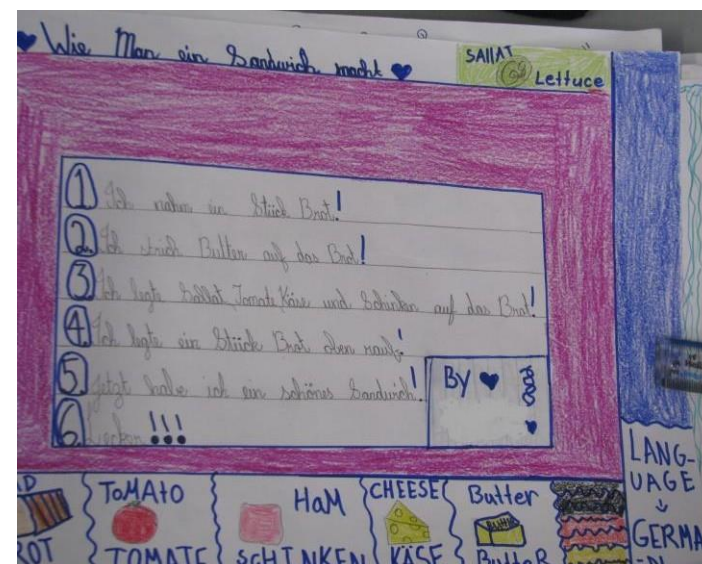 Wie Man ein Sandwich macht
SAllAT
Lettuce
1 Ich nahm ein Stück Brot!
2. Ich strich Butter auf das Brot!
3 Ich legte Sallat, Tomate, Käse und Schinken auf das Brot!
4. Ich legte ein Stück Brot oben rauf!
5. Jetzt habe ich ein schönes Sandwich!
6. Lecker!!!
By
ToMAtO
TOMATE
HaM
SCHINKEN
CHEESE
KÄSE
Butter
ButteR
LANG-
UAGE
GERMA